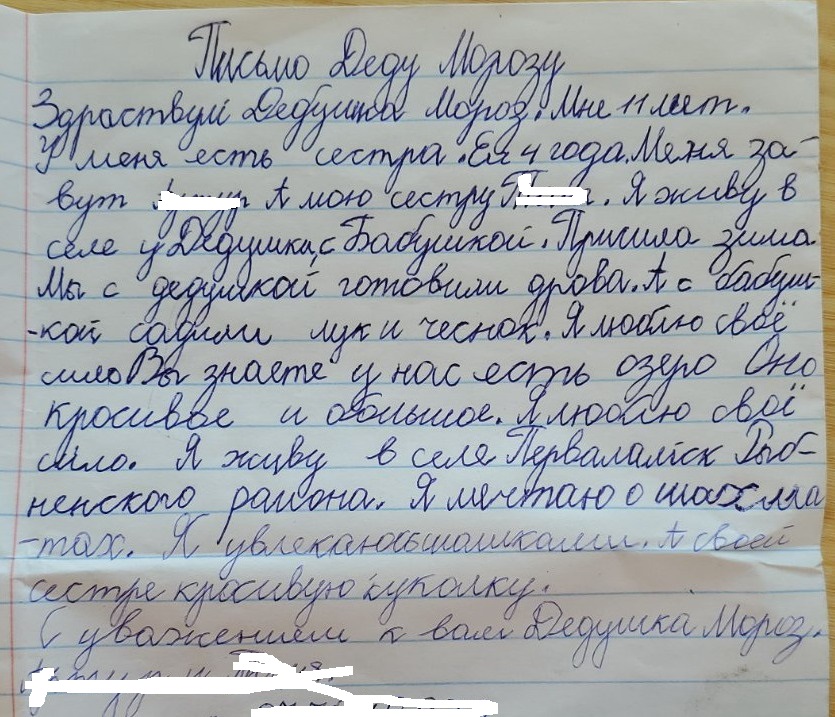 Письмо Деду Морозу
Здраствуй Дедушка Мороз. Мне 11 лет.
У меня есть сестра. Ей 4 года. Меня за-
вут А мою сестру Я живу в
селе у Дедушки, с Бабушкой. Пришла зима
Мы с дедушкой готовили дрова. А с бабуш-
-кой садили лук и чеснок. Я люблю своё
сило Вы знаете у нас есть озеро Оно
красивое и большое. Я люблю своё
сило. Я живу в селе
ненского района. Я мечтаю о шахма
-тах. Я увлекаюсь шашками. А своей
сестре красивую куколку.
С уважением к вам Дедушка Мороз.